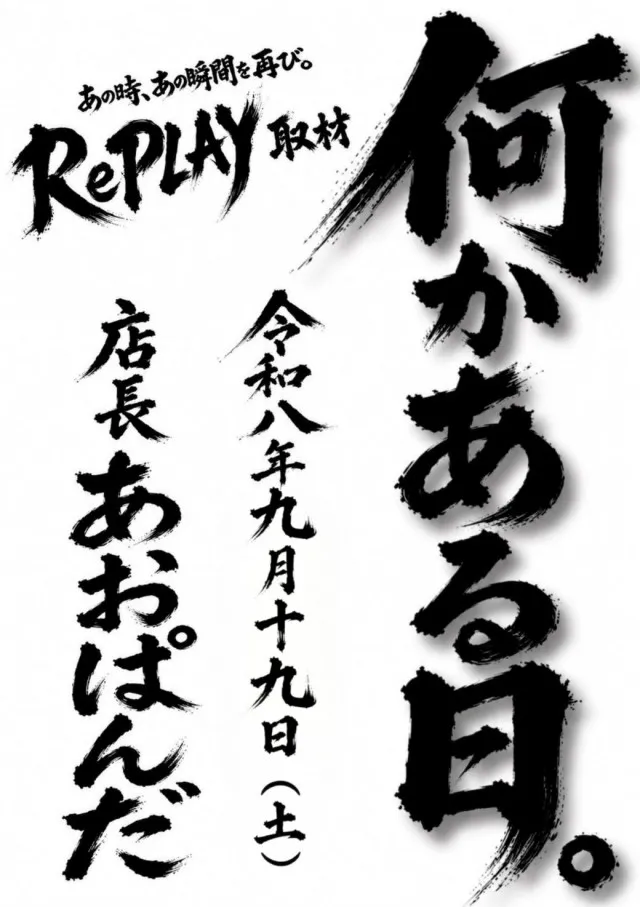 何かある日。
あの時、あの瞬間を再び。
RePLAY 取材
令和八年九月十九日(土)
店長 あおぱんだ